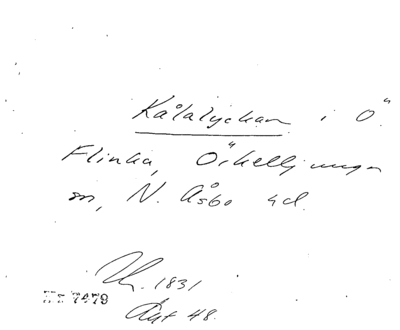 Kålalyckan i Ö.
Flinka, Örkelljunga
sn, N. Åsbo hd.
1831
Nr 7479
Akt 48.